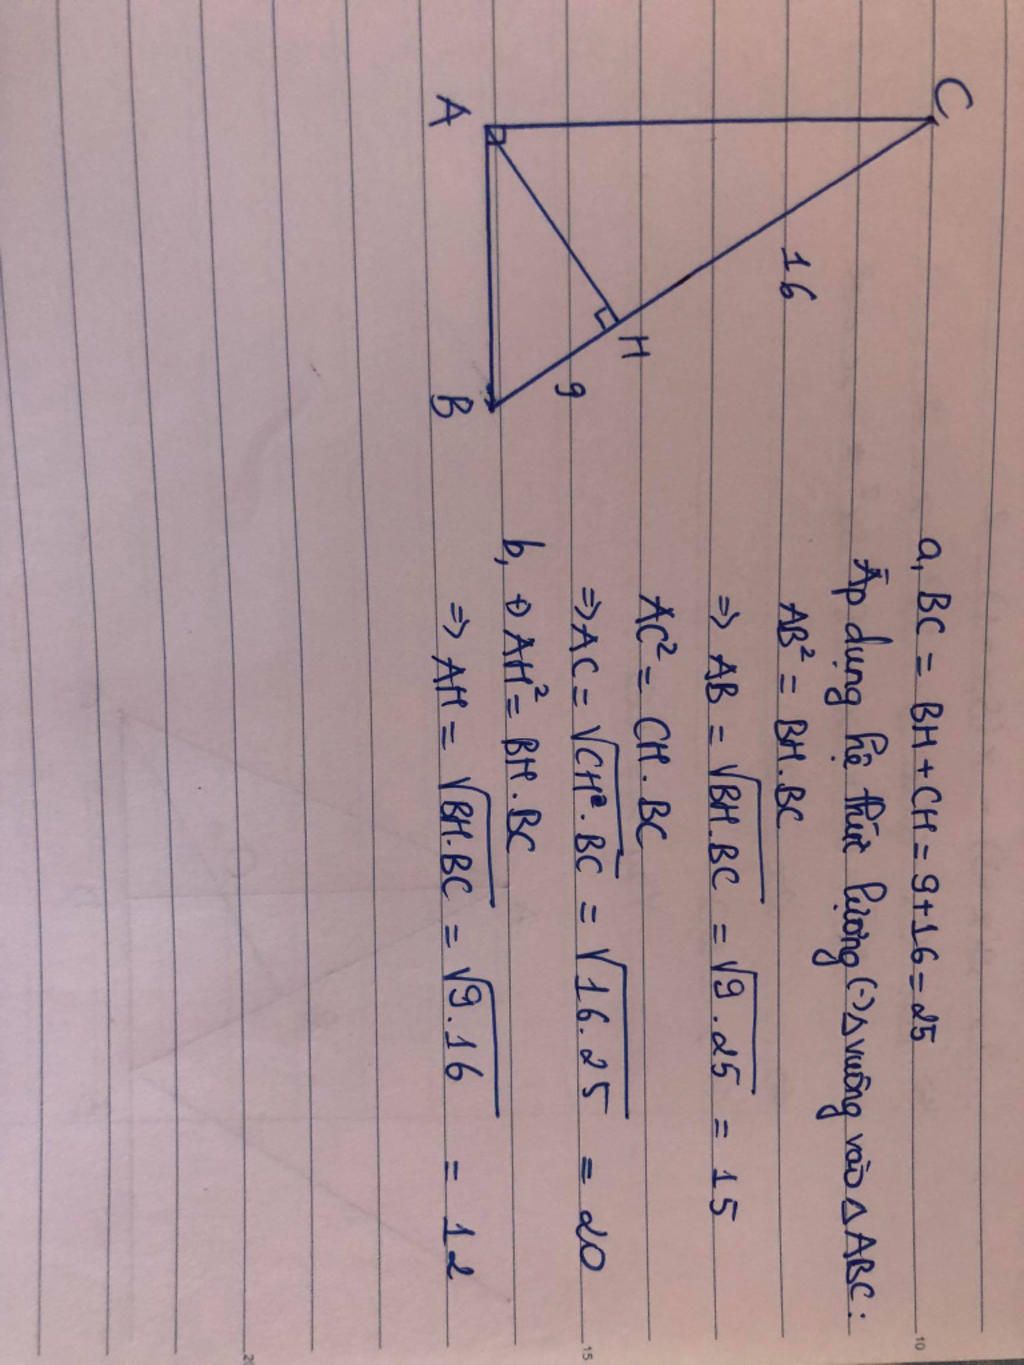 C
16
H
9
A
B
a, BC = BH + CH = 9 + 16 = 25
Áp dụng hệ thức lượng (-) Δ vuông vào Δ ABC :
AB² = BH . BC
=> AB = √BH.BC = √9.25 = 15
AC² = CH . BC
=> AC = √CH².BC = √16.25 = 20
b, +) AH² = BH . BC
=> AH = √BH.BC = √9.16 = 12
10
15